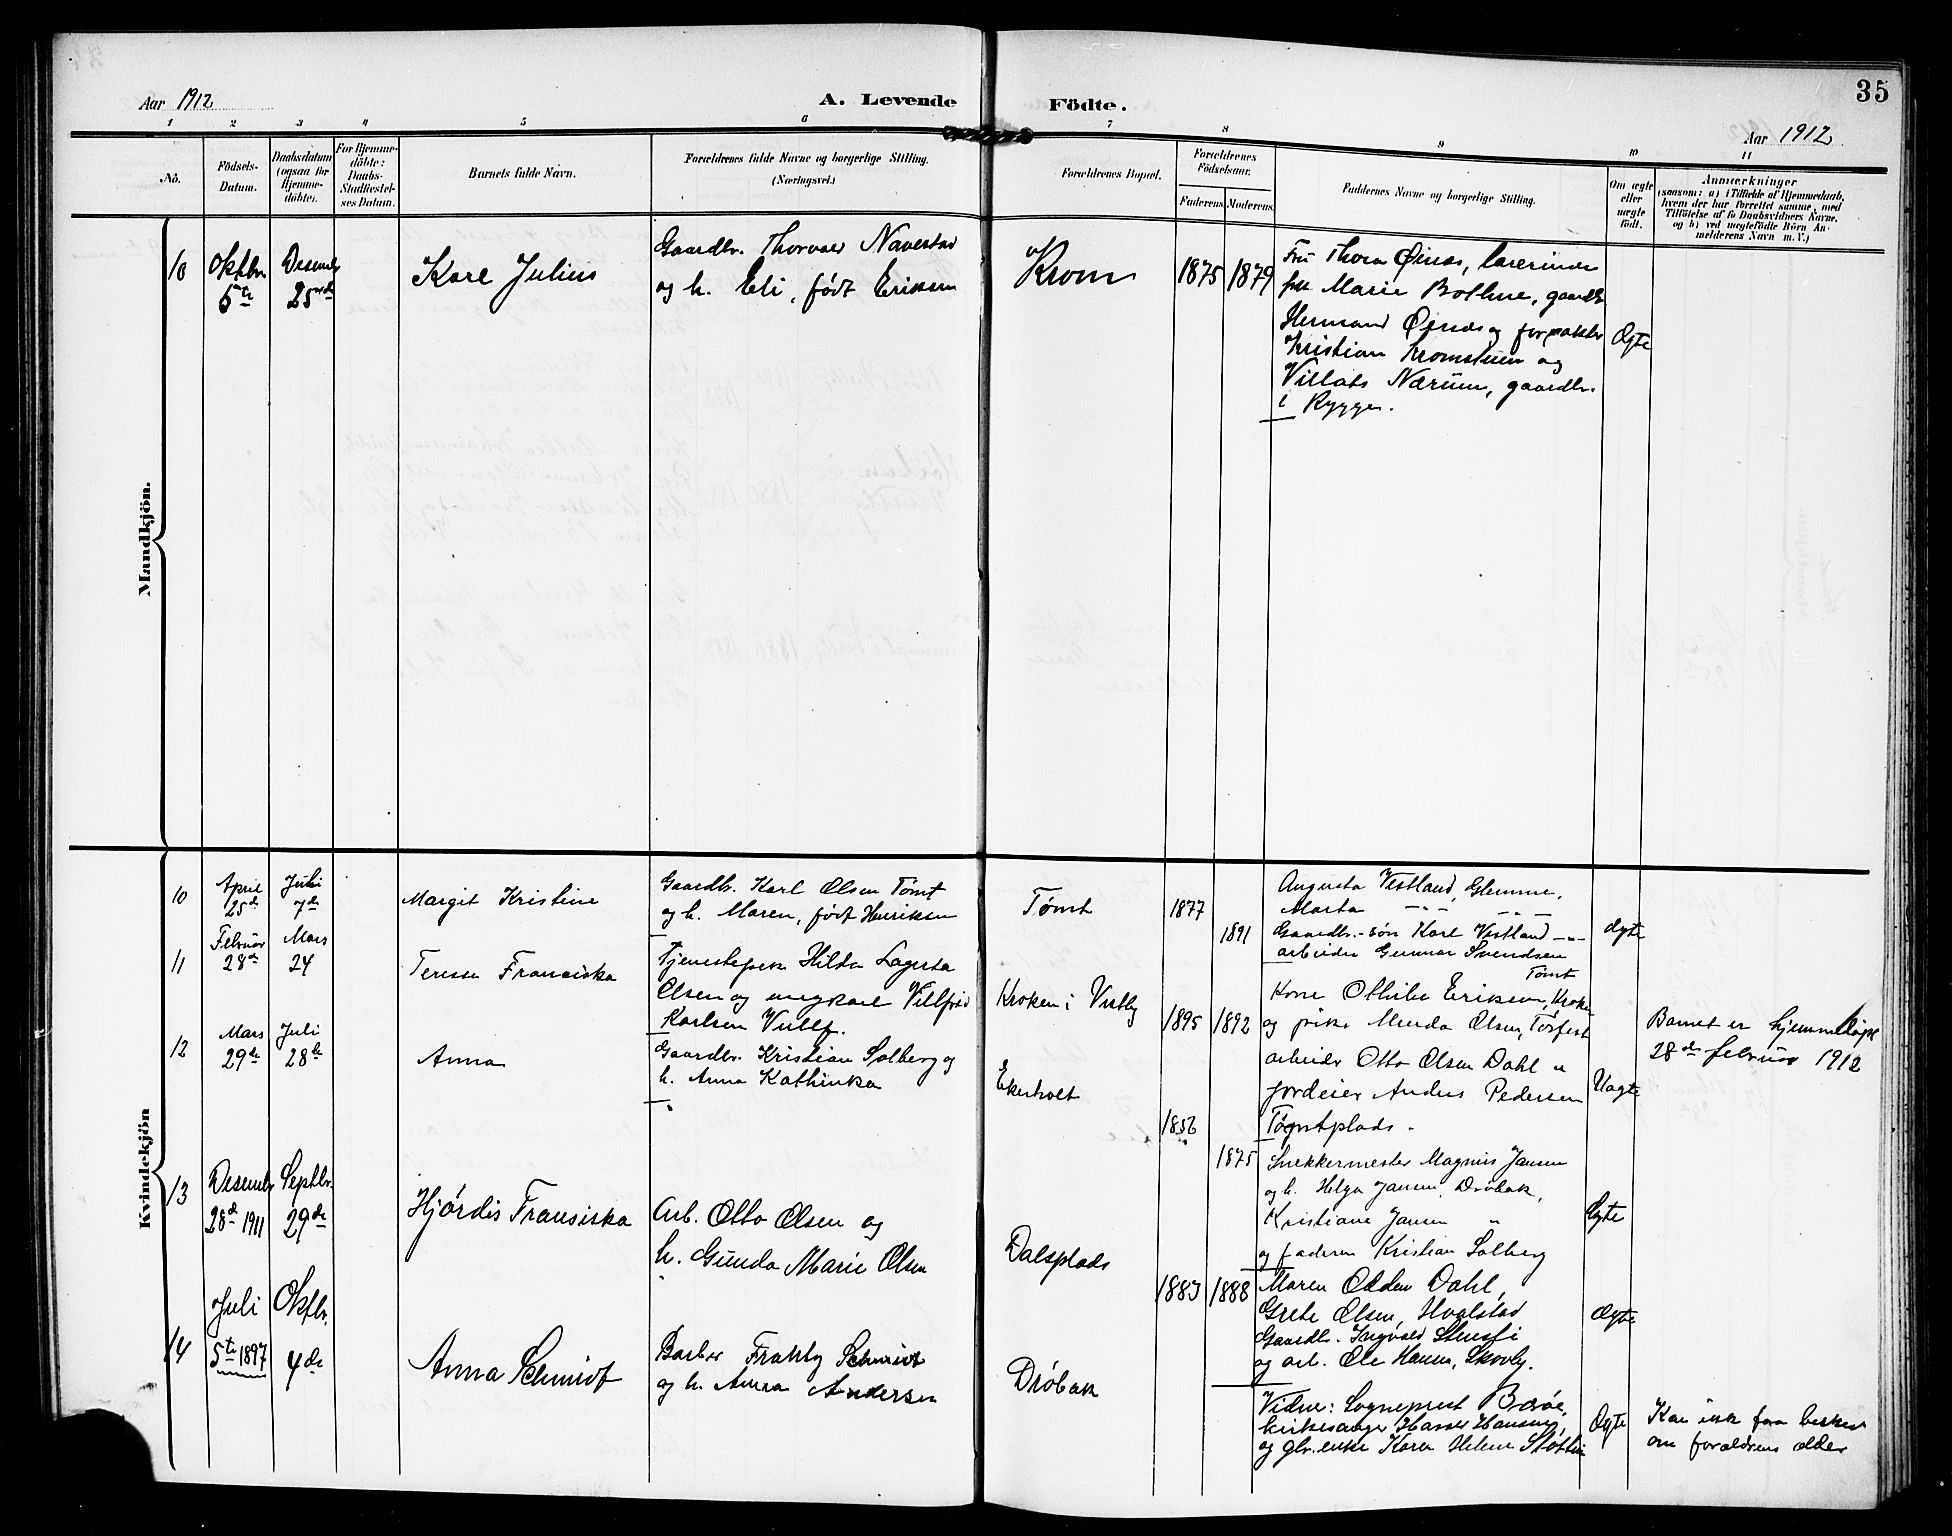 35
Aar 1912
A. Levende
Födte.
Aar 1912
1 2 3 4 5 6 7 8 9 10 11
No.
Födsels-
Datum.
Daabsdatum
(ogsaa for
Hjemme-
döbte).
For Hjemme-
döbte:
Daabs-
Stadfæstel-
ses Datum.
Barnets fulde Navn.
Forældrenes fulde Navne og borgerlige Stilling.
(Næringsvei.)
Forældrenes Bopæl.
Forældrenes
Födselsaar.
Faderens.
Moderens.
Faddernes Navne og borgerlige Stilling.
Om ægte
eller
uægte
født.
Anmærkninger
(saasom: a) i Tilfælde af Hjemmedaab,
hvem der har forrettet samme, med
Tilføielse af to Daabsvidners Navne.
og b) ved uægtefødte Börn An-
melderens Navn m. V.)
Mandkjön.
10
Oktbr.
5te
Desembr
25nde
Kare Julius
Gaardbr. Thorvald Navestad
og h. Eli, født Eriksen
Krom
1875
1879
Fru Thora Øinæs, lærerinde
frk Marie Bothne, gaardb
Hermand Øinæs og forpakter
Kristian Kromstuen og
Nærum, gaardbr.
i Rygge.
Ægte
Kvindekjön
10
April
25de
Juli
7de
Margit Kristine
Gaardbr. Karl Olsen Tømt
og h. Maren, født Henriksen
Tømt
1877
1891
Augusta Vestland, Glemme,
Marta -"- -"-
Gaardbr.-søn Karl Vestland -"-
arbeider Gunnar Svendsen
Tømt
ægte
11
Februar
28de
Mars
24
Terese Franciska
Tjenestepike Hilda Lagusta
Olsen og ungkarl Villfred
Karlsen
Kroken i Vestby
1895
1892
Kone Othilie Eriksen, Kroken
og pike Minda Olsen, Torfest
arbeider Otto Olsen Dahl "
jordeier Anders Pedersen
Tøgntplads.
Uægte
Barnet er hjemmedøpt
28de februar 1912
12
Mars
29de
Juli
28de
Anna
Gaardbr. Kristian Solberg og
h. Anna Kathinka
Ekerholt
1856
1875
Snekkermester Magnus Jansen
og h. Helga Jansen, Drøbak,
Kristiane Jansen "
og faderen Kristian Solberg
Ægte
13
Desembr
28de 1911
Septbr.
29de
Hjørdis Fransiska
Arb. Otto Olsen og
h. Gunda Marie Olsen
Dalsplads
1883
1888
Maren Olsen Dahl,
Grete Olsen, Hvalstad
Gaardb. Ingvald Stensfi
og arb. Ole Hansen, Skovly.
ægte
14
Juli
5te 1897
Oktbr.
4de
Anna Schmidt
Barber Schmidt
og h. Anna Andersen
Drøbak
Vidner: Sogneprest Barøe,
kirkesanger Hansen
og gbr.enke Karen Helene
Ægte
Kan ikke faa besked
om forældrens alder